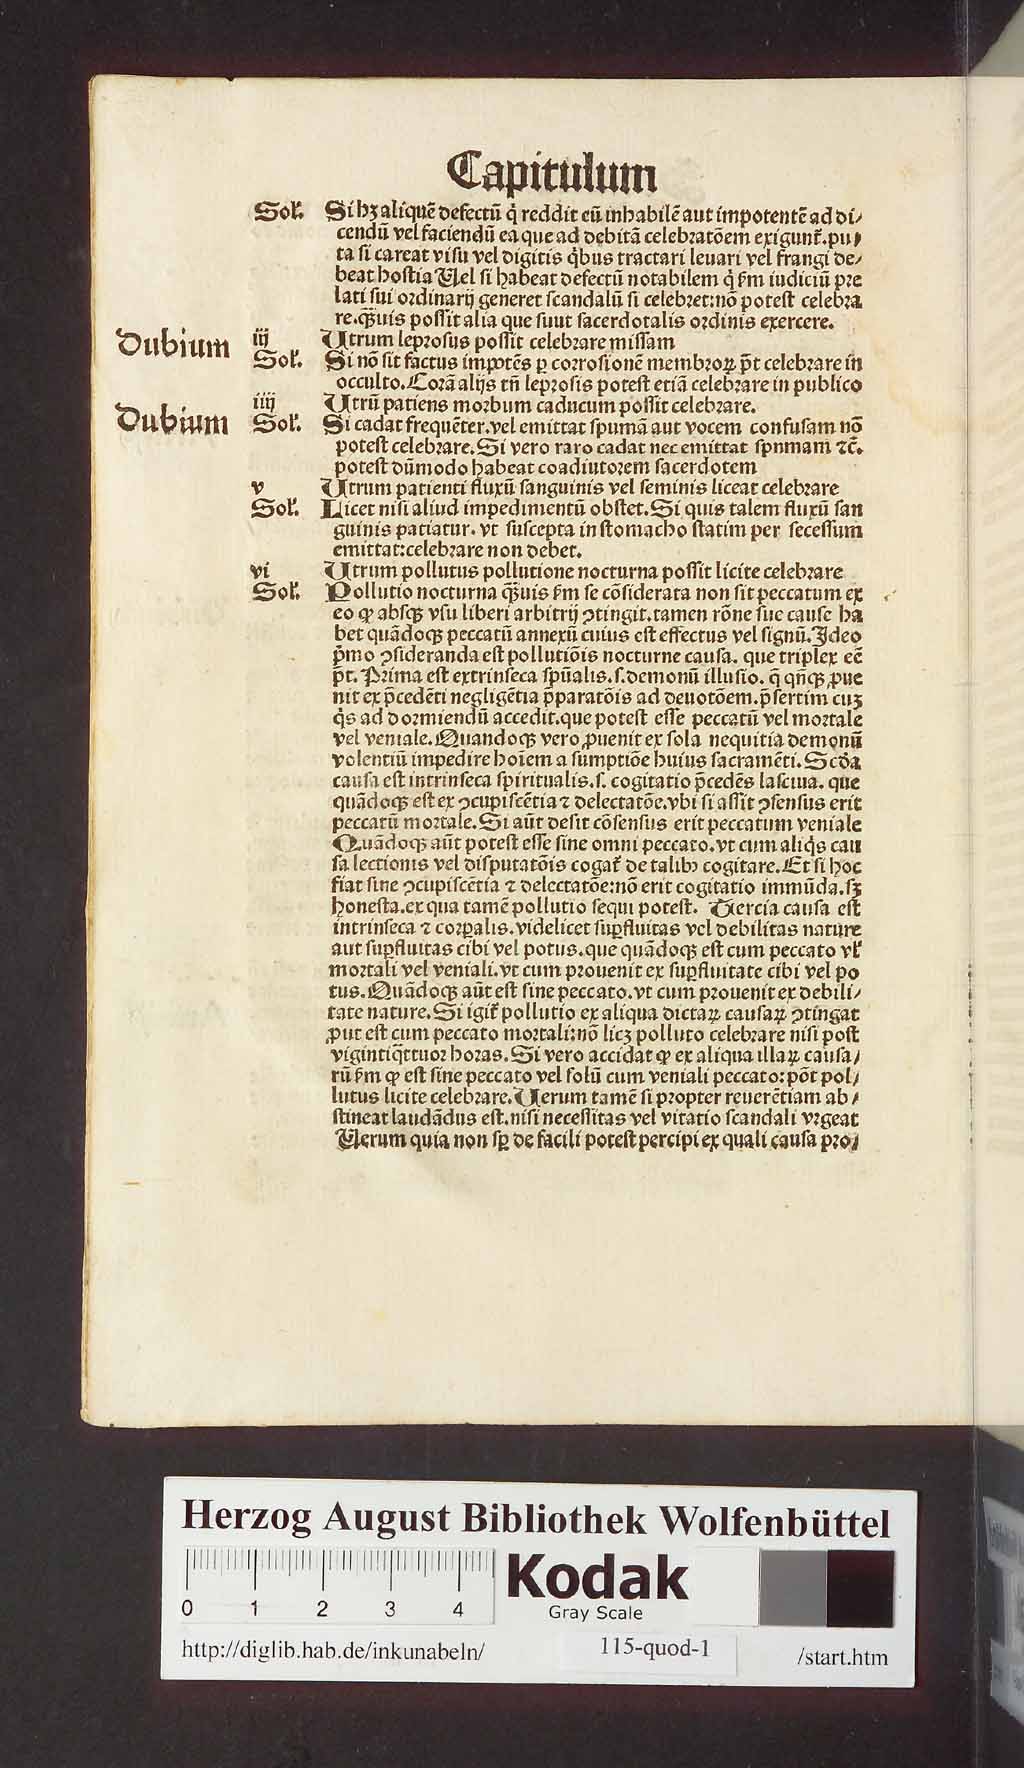 Capitulum
Solꝰ. Si hꝫ aliquē defectū q̇ reddit eū inhabilē aut impotentē ad di⸗
cendū vel faciendū ea que ad debitā celebratōem exigunt᷑. pu⸗
ta si careat visu vel digitis q̇bus tractari leuari vel frangi de⸗
beat hostia Uel si habeat defectū notabilem q̇ ẜm iudiciū pre
lati sui ordinarij generet scandalū si celebret: nō potest celebra
re. qꝫuis possit alia que suut sacerdotalis ordinis exercere.
Dubium iij Utrum leprosus possit celebrare missam
Sol. Si nō sit factus impotēs ꝑ corrosionē membroꝝ p̄t celebrare in
occulto. Corā alijs tn̄ leprosis potest etiā celebrare in publico
Dubium iiij Utrū patiens morbum caducum possit celebrare.
Sol. Si cadat frequēter. vel emittat spumā aut vocem confusam nō
potest celebrare. Si vero raro cadat nec emittat spnmam ⁊c̄.
potest dūmodo habeat coadiutorem sacerdotem
v Utrum patienti fluxū sanguinis vel seminis liceat celebrare
Sol. Licet nisi aliud impedimentū obstet. Si quis talem fluxū san
guinis patiatur. vt suscepta in stomacho statim per secessum
emittat: celebrare non debet.
vi Utrum pollutus pollutione nocturna possit licite celebrare
Sol. Pollutio nocturna qꝫuis ẜm se cōsiderata non sit peccatum ex
eo ꝙ absqꝫ vsu liberi arbitrij ↄtingit. tamen rōne sue cause ha
bet quādoqꝫ peccatū annexū cuius est effectus vel signū. Ideo
p̄mo ↄsideranda est pollutiōis nocturne causa. que triplex eē
p̄t. Prima est extrinseca spūalis. s. demonū illusio. q̄ qn̄qꝫ ꝓue
nit ex p̄cedēti negligētia p̄paratōis ad deuotōem. p̄sertim cuꝫ
q̇s ad dormiendū accedit. que potest esse peccatū vel mortale
vel veniale. Quandoqꝫ vero ꝓuenit ex sola nequitia demonū
volentiū impedire hoīem a sumptiōe huius sacramēti. Scd̄a
causa est intrinseca spiritualis. s. cogitatio p̄cedēs lasciua. que
quādoqꝫ est ex ↄcupiscētia ⁊ delectatōe. vbi si assit ↄsensus erit
peccatū mortale. Si aūt desit cōsensus erit peccatum veniale
Quādoqꝫ aūt potest esse sine omni peccato. vt cum aliq̇s cau
sa lectionis vel disputatōis cogat᷑ de talibꝰ cogitare. Et si hoc
fiat sine ↄcupiscētia ⁊ delectatōe: nō erit cogitatio immūda. sꝫ
honesta. ex qua tamē pollutio sequi potest. Tercia causa est
intrinseca ⁊ corꝑalis. videlicet suꝑfluitas vel debilitas nature
aut suꝑfluitas cibi vel potus. que quādoqꝫ est cum peccato vl̓
mortali vel veniali. vt cum prouenit ex suꝑfluitate cibi vel po
tus. Quādoqꝫ aūt est sine peccato. vt cum prouenit ex debili⸗
tate nature. Si igit᷑ pollutio ex aliqua dictaꝝ causaꝝ ↄtingat
ꝓut est cum peccato mortali: nō licꝫ polluto celebrare nisi post
vigintiq̄ttuor horas. Si vero accidat ꝙ ex aliqua illaꝝ causa⸗
rū ẜm ꝙ est sine peccato vel solū cum veniali peccato: pōt pol⸗
lutus licite celebrare. Uerum tamē si propter reuerētiam ab⸗
stineat laudādus est. nisi necessitas vel vitatio scandali vrgeat
Uerum quia non sꝑ de facili potest percipi ex quali causa pro⸗
Herzog August Bibliothek Wolfenbüttel
0 1 2 3 4
Kodak
Gray Scale
http://diglib.hab.de/inkunabeln/ 115-quod-1 /start.htm